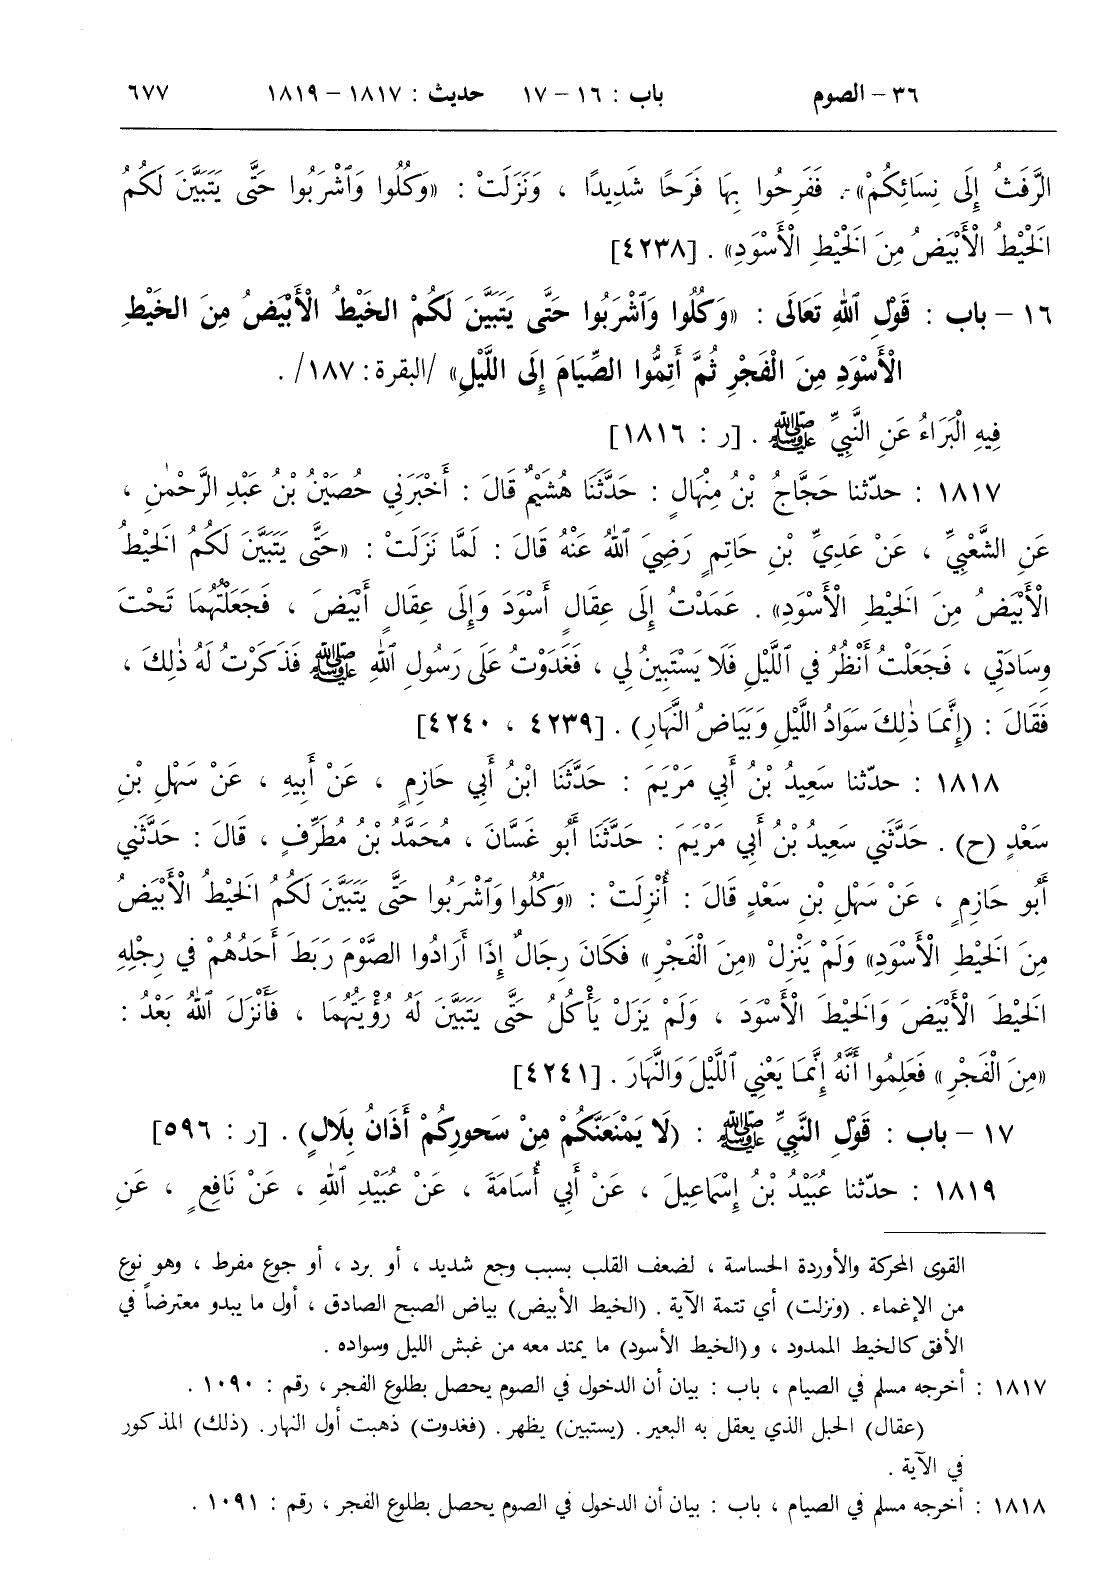 ٣٦ - الصوم    باب : ١٦ - ١٧    حديث : ١٨١٧ - ١٨١٩    ٦٧٧
الرَّفَثُ إِلَى نِسَائِكُمْ» . فَفَرِحُوا بِهَا فَرَحًا شَدِيدًا ، وَنَزَلَتْ : «وَكُلُوا وَٱشْرَبُوا حَتَّى يَتَبَيَّنَ لَكُمُ
الْخَيْطُ الْأَبْيَضُ مِنَ الْخَيْطِ الْأَسْوَدِ» . [٤٢٣٨]
١٦ - باب : قَوْلِ ٱللهِ تَعَالَى : «وَكُلُوا وَٱشْرَبُوا حَتَّى يَتَبَيَّنَ لَكُمْ الخَيْطُ الْأَبْيَضُ مِنَ الخَيْطِ
الْأَسْوَدِ مِنَ الْفَجْرِ ثُمَّ أَتِمُّوا الصِّيَامَ إِلَى اللَّيْلِ» /البقرة: ١٨٧/ .
فِيهِ الْبَرَاءُ عَنِ النَّبِيِّ ﷺ . [ر : ١٨١٦]
١٨١٧ : حدّثنا حَجَّاجُ بْنُ مِنْهَالٍ : حَدَّثَنَا هُشَيْمٌ قَالَ : أَخْبَرَنِي حُصَيْنُ بْنُ عَبْدِ الرَّحْمٰنِ ،
عَنِ الشَّعْبِيِّ ، عَنْ عَدِيِّ بْنِ حَاتِمٍ رَضِيَ ٱللهُ عَنْهُ قَالَ : لَمَّا نَزَلَتْ : «حَتَّى يَتَبَيَّنَ لَكُمُ الْخَيْطُ
الْأَبْيَضُ مِنَ الْخَيْطِ الْأَسْوَدِ» . عَمَدْتُ إِلَى عِقَالٍ أَسْوَدَ وَإِلَى عِقَالٍ أَبْيَضَ ، فَجَعَلْتُهُمَا تَحْتَ
وِسَادَتِي ، فَجَعَلْتُ أَنْظُرُ فِي ٱللَّيْلِ فَلَا يَسْتَبِينُ لِي ، فَغَدَوْتُ عَلَى رَسُولِ ٱللهِ ﷺ فَذَكَرْتُ لَهُ ذٰلِكَ ،
فَقَالَ : (إِنَّمَا ذٰلِكَ سَوَادُ اللَّيْلِ وَبَيَاضُ النَّهَارِ) . [٤٢٣٩ ، ٤٢٤٠]
١٨١٨ : حدّثنا سَعِيدُ بْنُ أَبِي مَرْيَمَ : حَدَّثَنَا ابْنُ أَبِي حَازِمٍ ، عَنْ أَبِيهِ ، عَنْ سَهْلِ بْنِ
سَعْدٍ (ح) . حَدَّثَنِي سَعِيدُ بْنُ أَبِي مَرْيَمَ : حَدَّثَنَا أَبُو غَسَّانَ ، مُحَمَّدُ بْنُ مُطَرِّفٍ ، قَالَ : حَدَّثَنِي
أَبُو حَازِمٍ ، عَنْ سَهْلِ بْنِ سَعْدٍ قَالَ : أُنْزِلَتْ : «وَكُلُوا وَٱشْرَبُوا حَتَّى يَتَبَيَّنَ لَكُمُ الْخَيْطُ الْأَبْيَضُ
مِنَ الْخَيْطِ الْأَسْوَدِ» وَلَمْ يَنْزِلْ «مِنَ الْفَجْرِ» فَكَانَ رِجَالٌ إِذَا أَرَادُوا الصَّوْمَ رَبَطَ أَحَدُهُمْ فِي رِجْلِهِ
الْخَيْطَ الْأَبْيَضَ وَالْخَيْطَ الْأَسْوَدَ ، وَلَمْ يَزَلْ يَأْكُلُ حَتَّى يَتَبَيَّنَ لَهُ رُؤْيَتُهُمَا ، فَأَنْزَلَ ٱللهُ بَعْدُ :
«مِنَ الْفَجْرِ» فَعَلِمُوا أَنَّهُ إِنَّمَا يَعْنِي ٱللَّيْلَ وَالنَّهَارَ . [٤٢٤١]
١٧ - باب : قَوْلِ النَّبِيِّ ﷺ : (لَا يَمْنَعَنَّكُمْ مِنْ سَحُورِكُمْ أَذَانُ بِلَالٍ) . [ر : ٥٩٦]
١٨١٩ : حدّثنا عُبَيْدُ بْنُ إِسْمَاعِيلَ ، عَنْ أَبِي أُسَامَةَ ، عَنْ عُبَيْدِ ٱللهِ ، عَنْ نَافِعٍ ، عَنِ
القوى المحركة والأوردة الحساسة ، لضعف القلب بسبب وجع شديد ، أو برد ، أو جوع مفرط ، وهو نوع
من الإغماء . (ونزلت) أي تتمة الآية . (الخيط الأبيض) بياض الصبح الصادق ، أول ما يبدو معترضاً في
الأفق كالخيط الممدود ، و(الخيط الأسود) ما يمتد معه من غبش الليل وسواده .
١٨١٧ : أخرجه مسلم في الصيام ، باب : بيان أن الدخول في الصوم يحصل بطلوع الفجر ، رقم : ١٠٩٠ .
(عقال) الحبل الذي يعقل به البعير . (يستبين) يظهر . (فغدوت) ذهبت أول النهار . (ذلك) المذكور
في الآية .
١٨١٨ : أخرجه مسلم في الصيام ، باب : بيان أن الدخول في الصوم يحصل بطلوع الفجر ، رقم : ١٠٩١ .